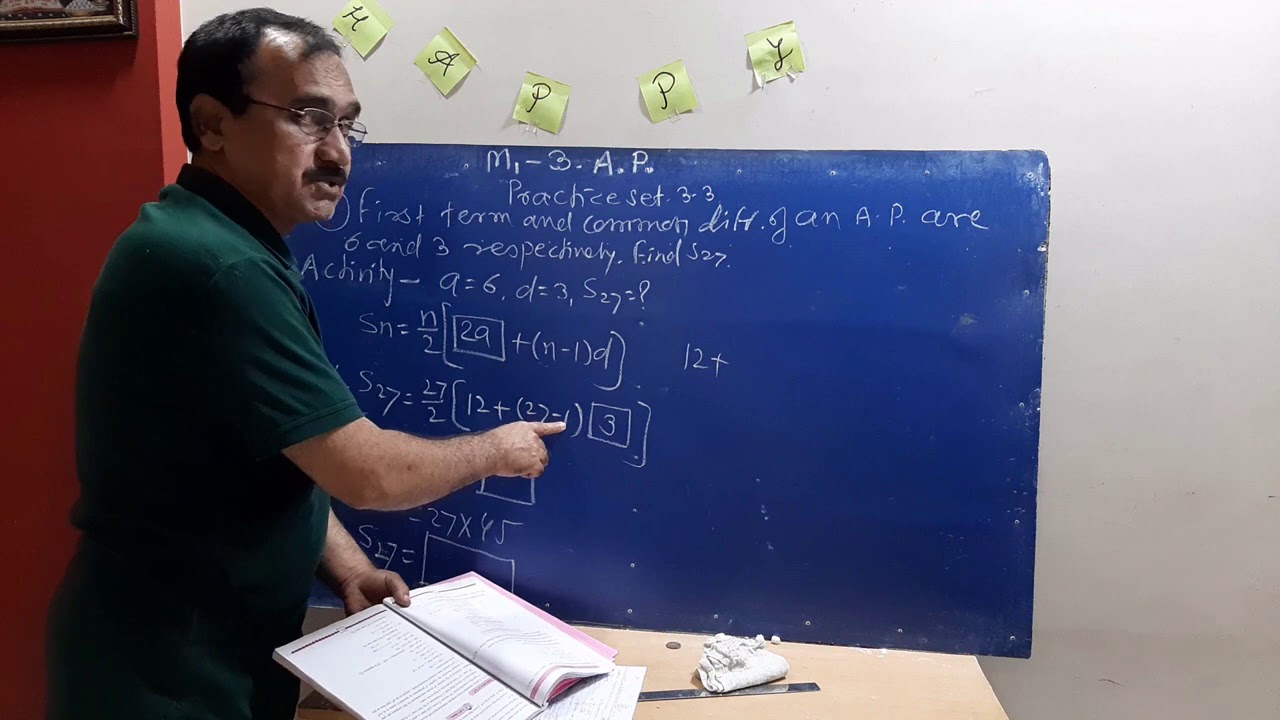 H A P P Y
M₁ - 3. A.P.
Practice set. 3.3
) First term and common diff. of an A.P. are
6 and 3 respectively. Find S₂₇.
Activity - a=6, d=3, S₂₇=?
Sn = n/2 [2a + (n-1)d]
12+
S₂₇ = 27/2 [12 + (27-1) 3]
= 27 × 45
S₂₇ =